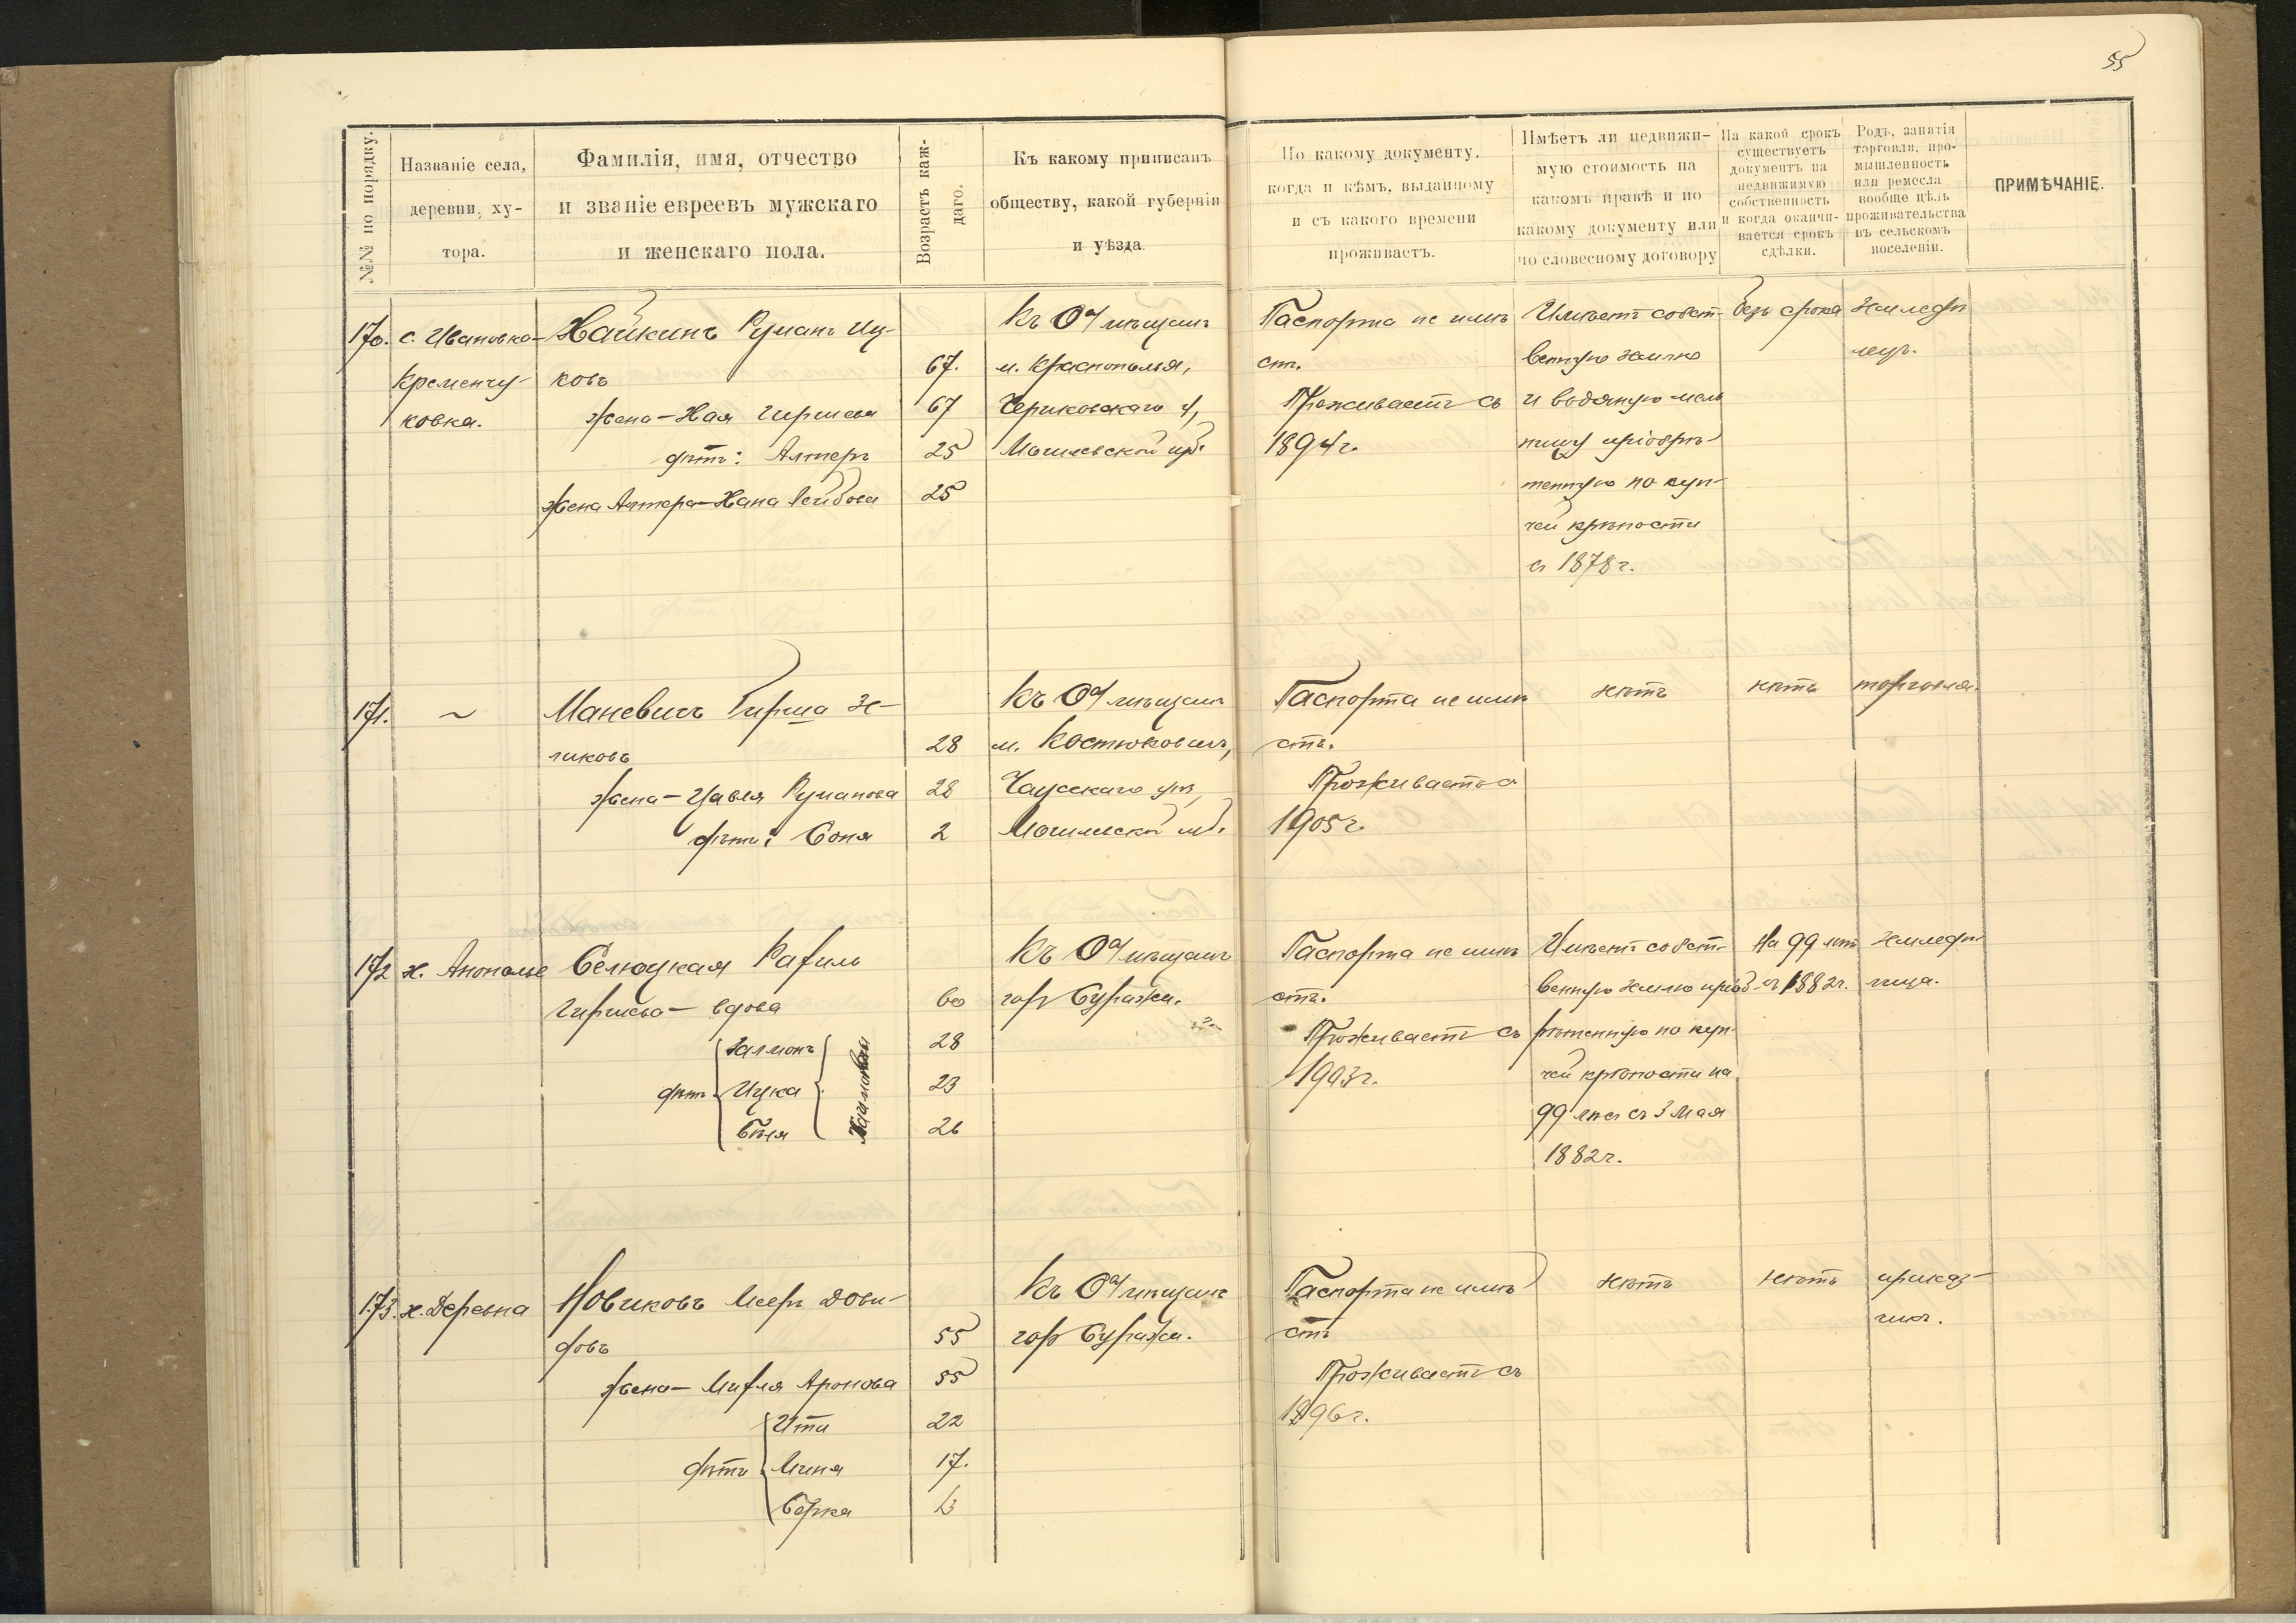 55
№№ по порядку.
Названіе села,
деревни, ху-
тора.
Фамилія, имя, отчество
и званіе евреевъ мужскаго
и женскаго пола.
Возрастъ каж-
даго.
Къ какому приписанъ
обществу, какой губерніи
и уѣзда.
По какому документу,
когда и кѣмъ, выданному
и съ какого времени
проживаетъ.
Имѣетъ ли недвижи-
мую стоимость на
какомъ правѣ и по
какому документу или
по словесному договору
На какой срокъ
существуетъ
документъ на
недвижимую
собственность
и когда оканчи-
вается срокъ
сдѣлки.
Родъ, занятія
торговля, про-
мышленность
или ремесла
вообще цѣль
проживательства
въ сельскомъ
поселеніи.
ПРИМѢЧАНІЕ.
170.
с. Ивановка-
Кременчу-
ковка.
Хайкинъ Руманъ Иц-
ковъ
67.
жена - Хая Гиршева
67
дѣти: Алтеръ
25
Жена Алтера - Хана Лейбова
25
Къ О⁠-ву мѣщанъ
м. Краснополья,
Чериковскаго у,
Могилевской губ.
Паспорта не имѣ
етъ.
Проживаетъ съ
1894 г.
Имѣетъ собст-
венную землю
и водяную мель
ницу пріобрѣ-
тенную по куп-
чей крѣпости
съ 1878 г.
безъ срока
Земледѣ
лецъ.
171.
~
Маневичъ Гирша Зе-
ликовъ
28
жена - Цавля Руманова
28
дѣти: Соня
2
Къ О-ву мѣщанъ
м. Костюковичъ,
Чаусскаго уѣз,
Могилевской губ.
Паспорта не имѣ
етъ.
Проживаетъ съ
1905 г.
нѣтъ
нѣтъ
торговля.
172
х. Анополье
Селюцкая Рафиль
Гиршева - вдова
60
дѣти
Залмонъ
28
Ицка
23
Беня
26
Къ О-ву мѣщанъ
гор Суража.
Паспорта не имѣ
етъ.
Проживаетъ съ
1903 г.
Имѣетъ собст-
венную землю пріоб-
рѣтенную по куп-
чей крѣпости на
99 лѣтъ съ 3 Мая
1882 г.
На 99 лѣтъ
съ 1882 г.
Земледѣ-
лица.
173.
х. Деревна
Новиковъ Мееръ Дови-
довъ
55
жена - Мирля Аронова
55
дѣти
Ити
22
Миня
17.
Борка
13
Къ О-ву мѣщанъ
гор Суража.
Паспорта не имѣ
етъ
Проживаетъ съ
1896 г.
нѣтъ
нѣтъ
приказ-
чикъ.